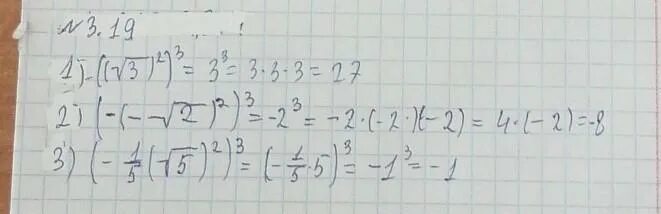 № 3.19
1) -((√3)²)³ = 3³ = 3·3·3 = 27
2) (-(--√2)²)³ = -2³ = -2·(-2·)(-2) = 4·(-2) = -8
3) (-1/5(√5)²)³ = (-1/5·5)³ = -1³ = -1